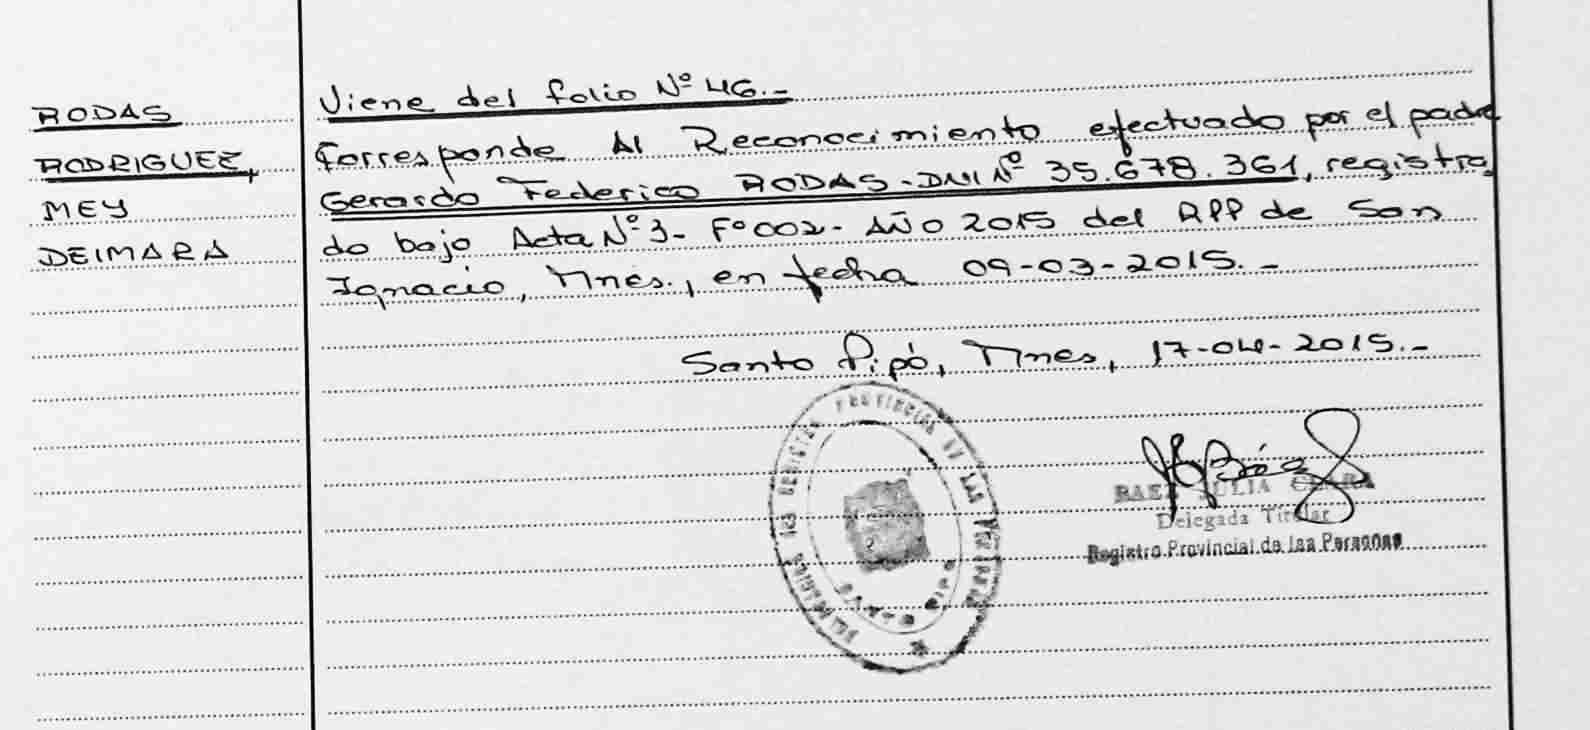 RODAS
RODRIGUEZ,
MEY
DEIMARA
Viene del folio Nº 46.-
Corresponde Al Reconocimiento efectuado por el padre
Gerardo Federico RODAS-DNI Nº 35.678.361, registra
do bajo Acta Nº 3- Fº 002- AÑO 2015 del RPP de San
Ignacio, Mnes., en fecha 09-03-2015.-
Santo Pipó, Mnes, 17-04-2015.-
REGISTRO PROVINCIAL DE LAS PERSONAS
SANTO PIPO
BAEZ JULIA CLARA
Delegada Titular
Registro Provincial de las Personas